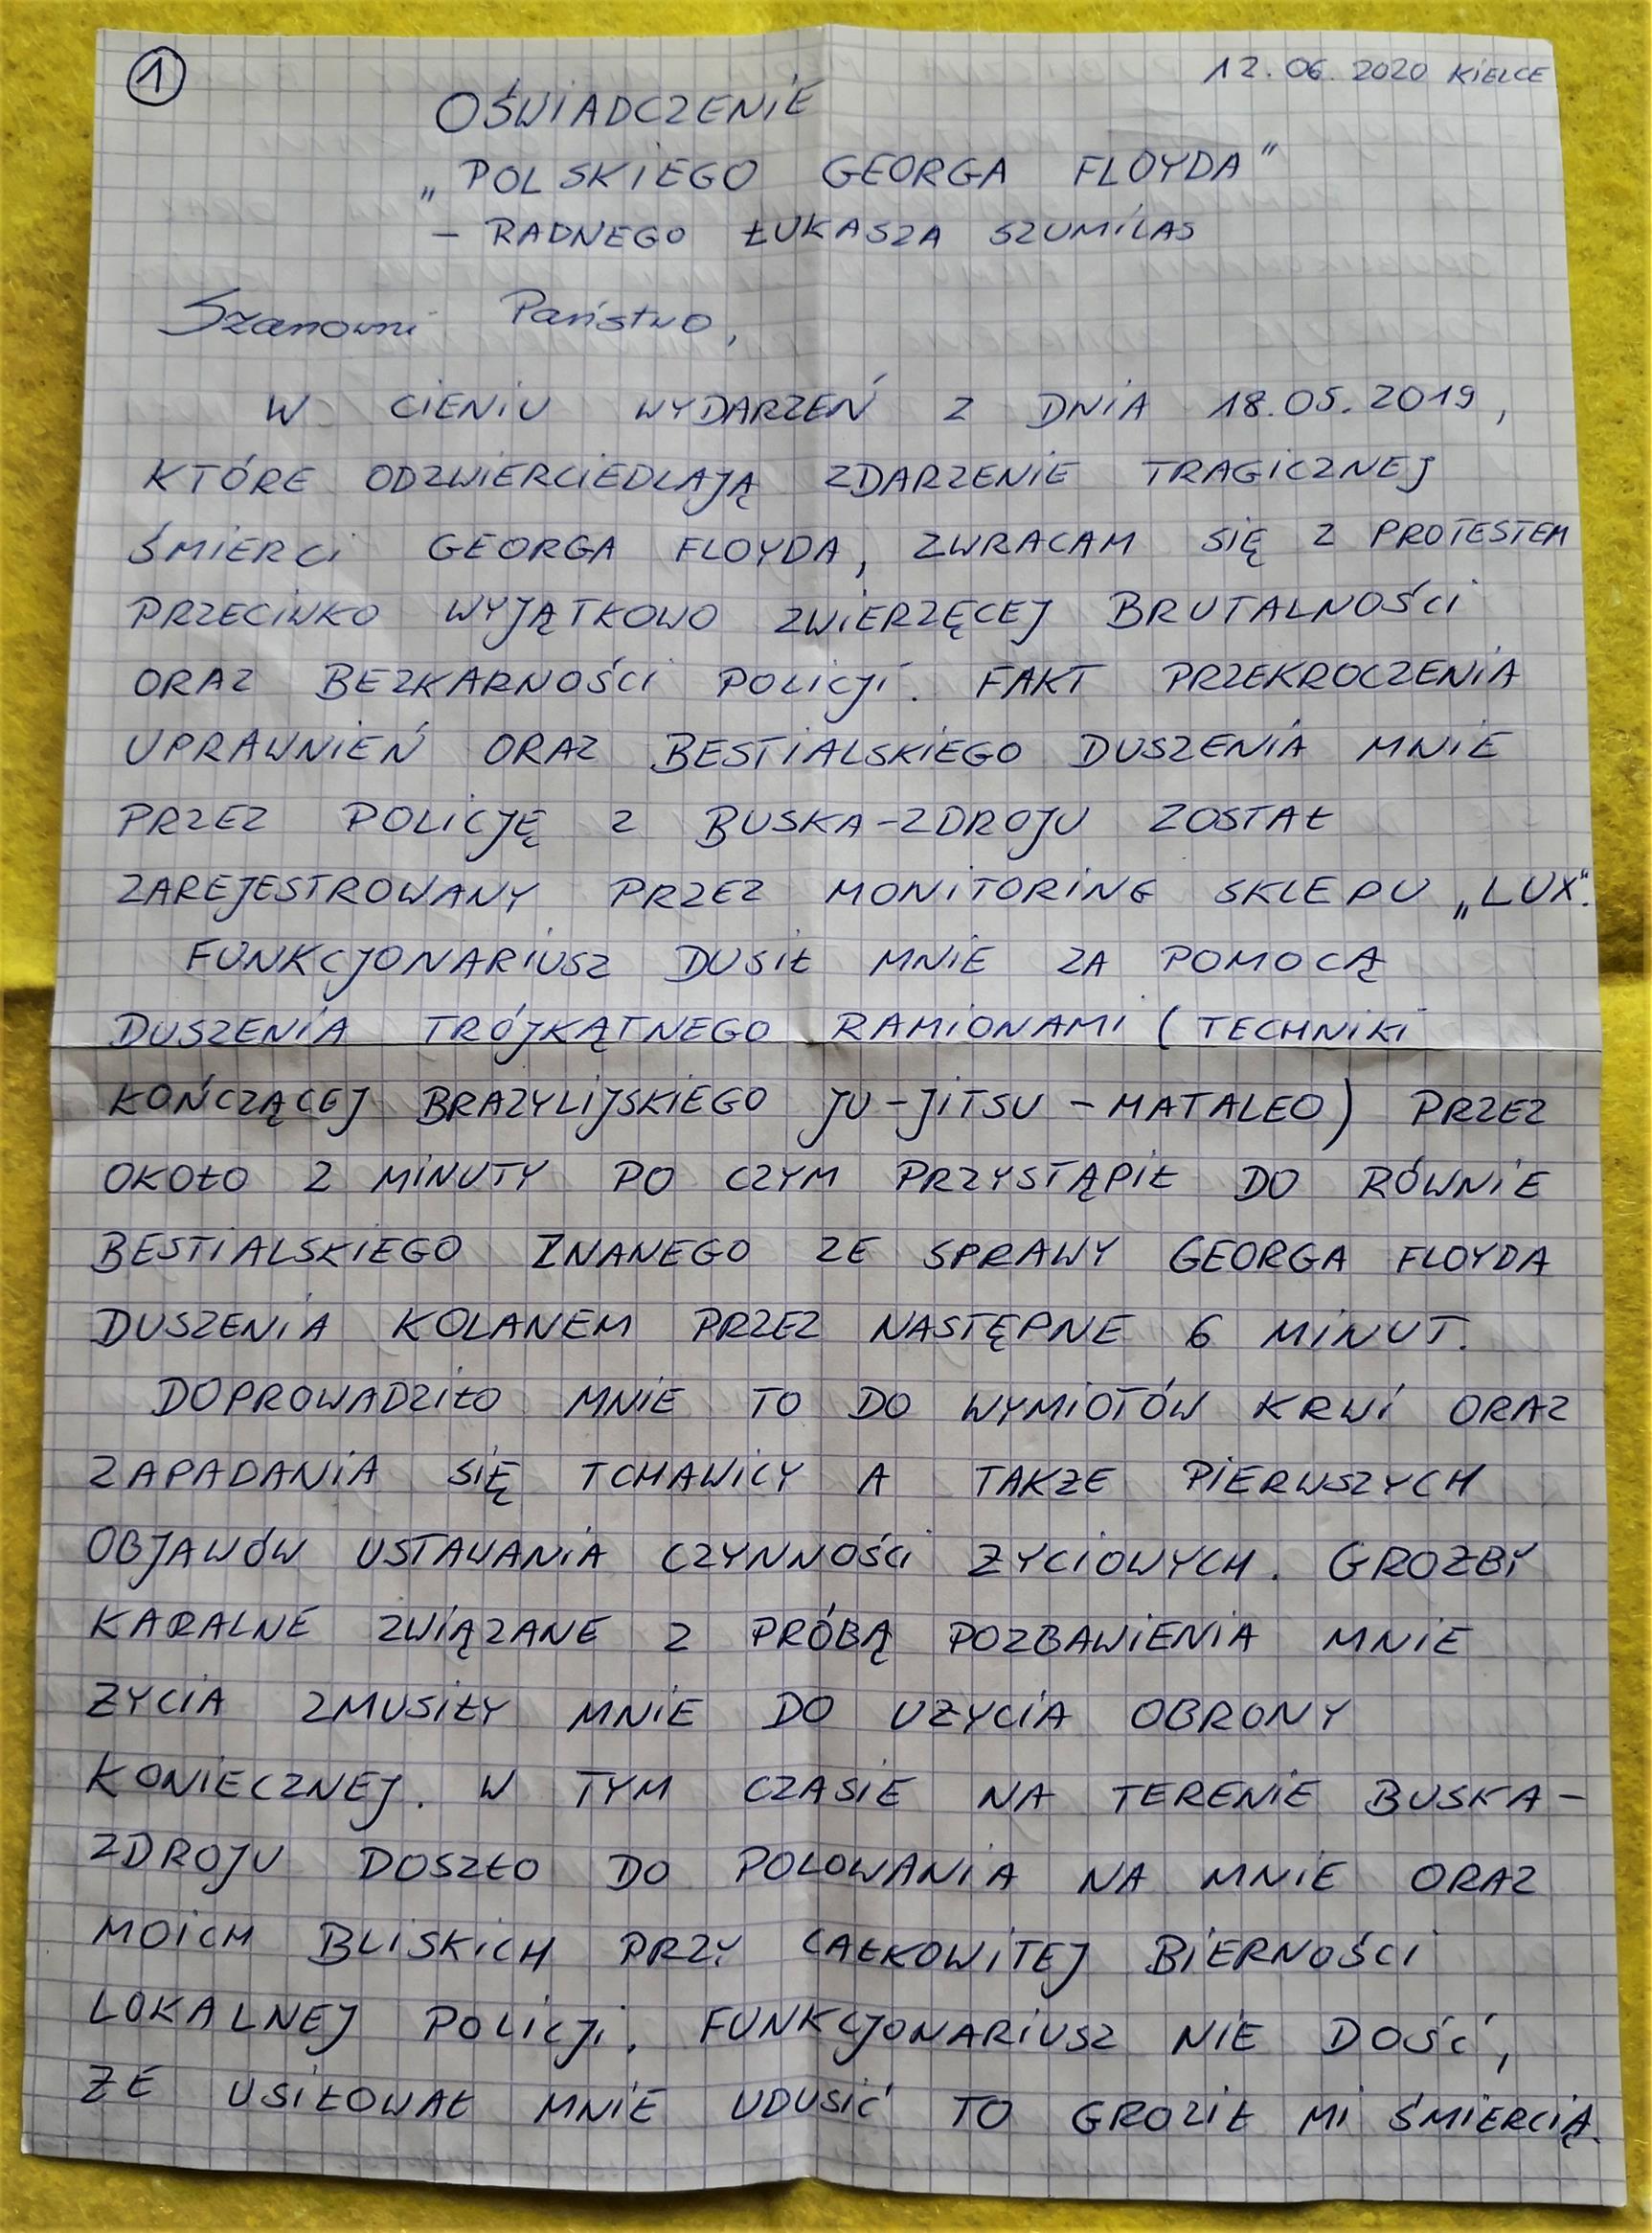 1
12.06.2020 KIELCE
OŚWIADCZENIE
„POLSKIEGO GEORGA FLOYDA"
- RADNEGO ŁUKASZA SZUMILAS
Szanowni Państwo,
W CIENIU WYDARZEŃ Z DNIA 18.05.2019,
KTÓRE ODZWIERCIEDLAJĄ ZDARZENIE TRAGICZNEJ
ŚMIERCI GEORGA FLOYDA, ZWRACAM SIĘ Z PROTESTEM
PRZECIWKO WYJĄTKOWO ZWIERZĘCEJ BRUTALNOŚCI
ORAZ BEZKARNOŚCI POLICJI. FAKT PRZEKROCZENIA
UPRAWNIEŃ ORAZ BESTIALSKIEGO DUSZENIA MNIE
PRZEZ POLICJĘ Z BUSKA-ZDROJU ZOSTAŁ
ZAREJESTROWANY PRZEZ MONITORING SKLEPU „LUX".
FUNKCJONARIUSZ DUSIŁ MNIE ZA POMOCĄ
DUSZENIA TRÓJKĄTNEGO RAMIONAMI (TECHNIKI
KOŃCZĄCEJ BRAZYLIJSKIEGO JU-JITSU - MATALEO) PRZEZ
OKOŁO 2 MINUTY PO CZYM PRZYSTĄPIŁ DO RÓWNIE
BESTIALSKIEGO ZNANEGO ZE SPRAWY GEORGA FLOYDA
DUSZENIA KOLANEM PRZEZ NASTĘPNE 6 MINUT.
DOPROWADZIŁO MNIE TO DO WYMIOTÓW KRWI ORAZ
ZAPADANIA SIĘ TCHAWICY A TAKŻE PIERWSZYCH
OBJAWÓW USTAWANIA CZYNNOŚCI ŻYCIOWYCH. GROŹBY
KARALNE ZWIĄZANE Z PRÓBĄ POZBAWIENIA MNIE
ŻYCIA ZMUSIŁY MNIE DO UŻYCIA OBRONY
KONIECZNEJ. W TYM CZASIE NA TERENIE BUSKA-
ZDROJU DOSZŁO DO POLOWANIA NA MNIE ORAZ
MOICH BLISKICH PRZY CAŁKOWITEJ BIERNOŚCI
LOKALNEJ POLICJI. FUNKCJONARIUSZ NIE DOŚĆ,
ŻE USIŁOWAŁ MNIE UDUSIĆ TO GROZIŁ MI ŚMIERCIĄ.